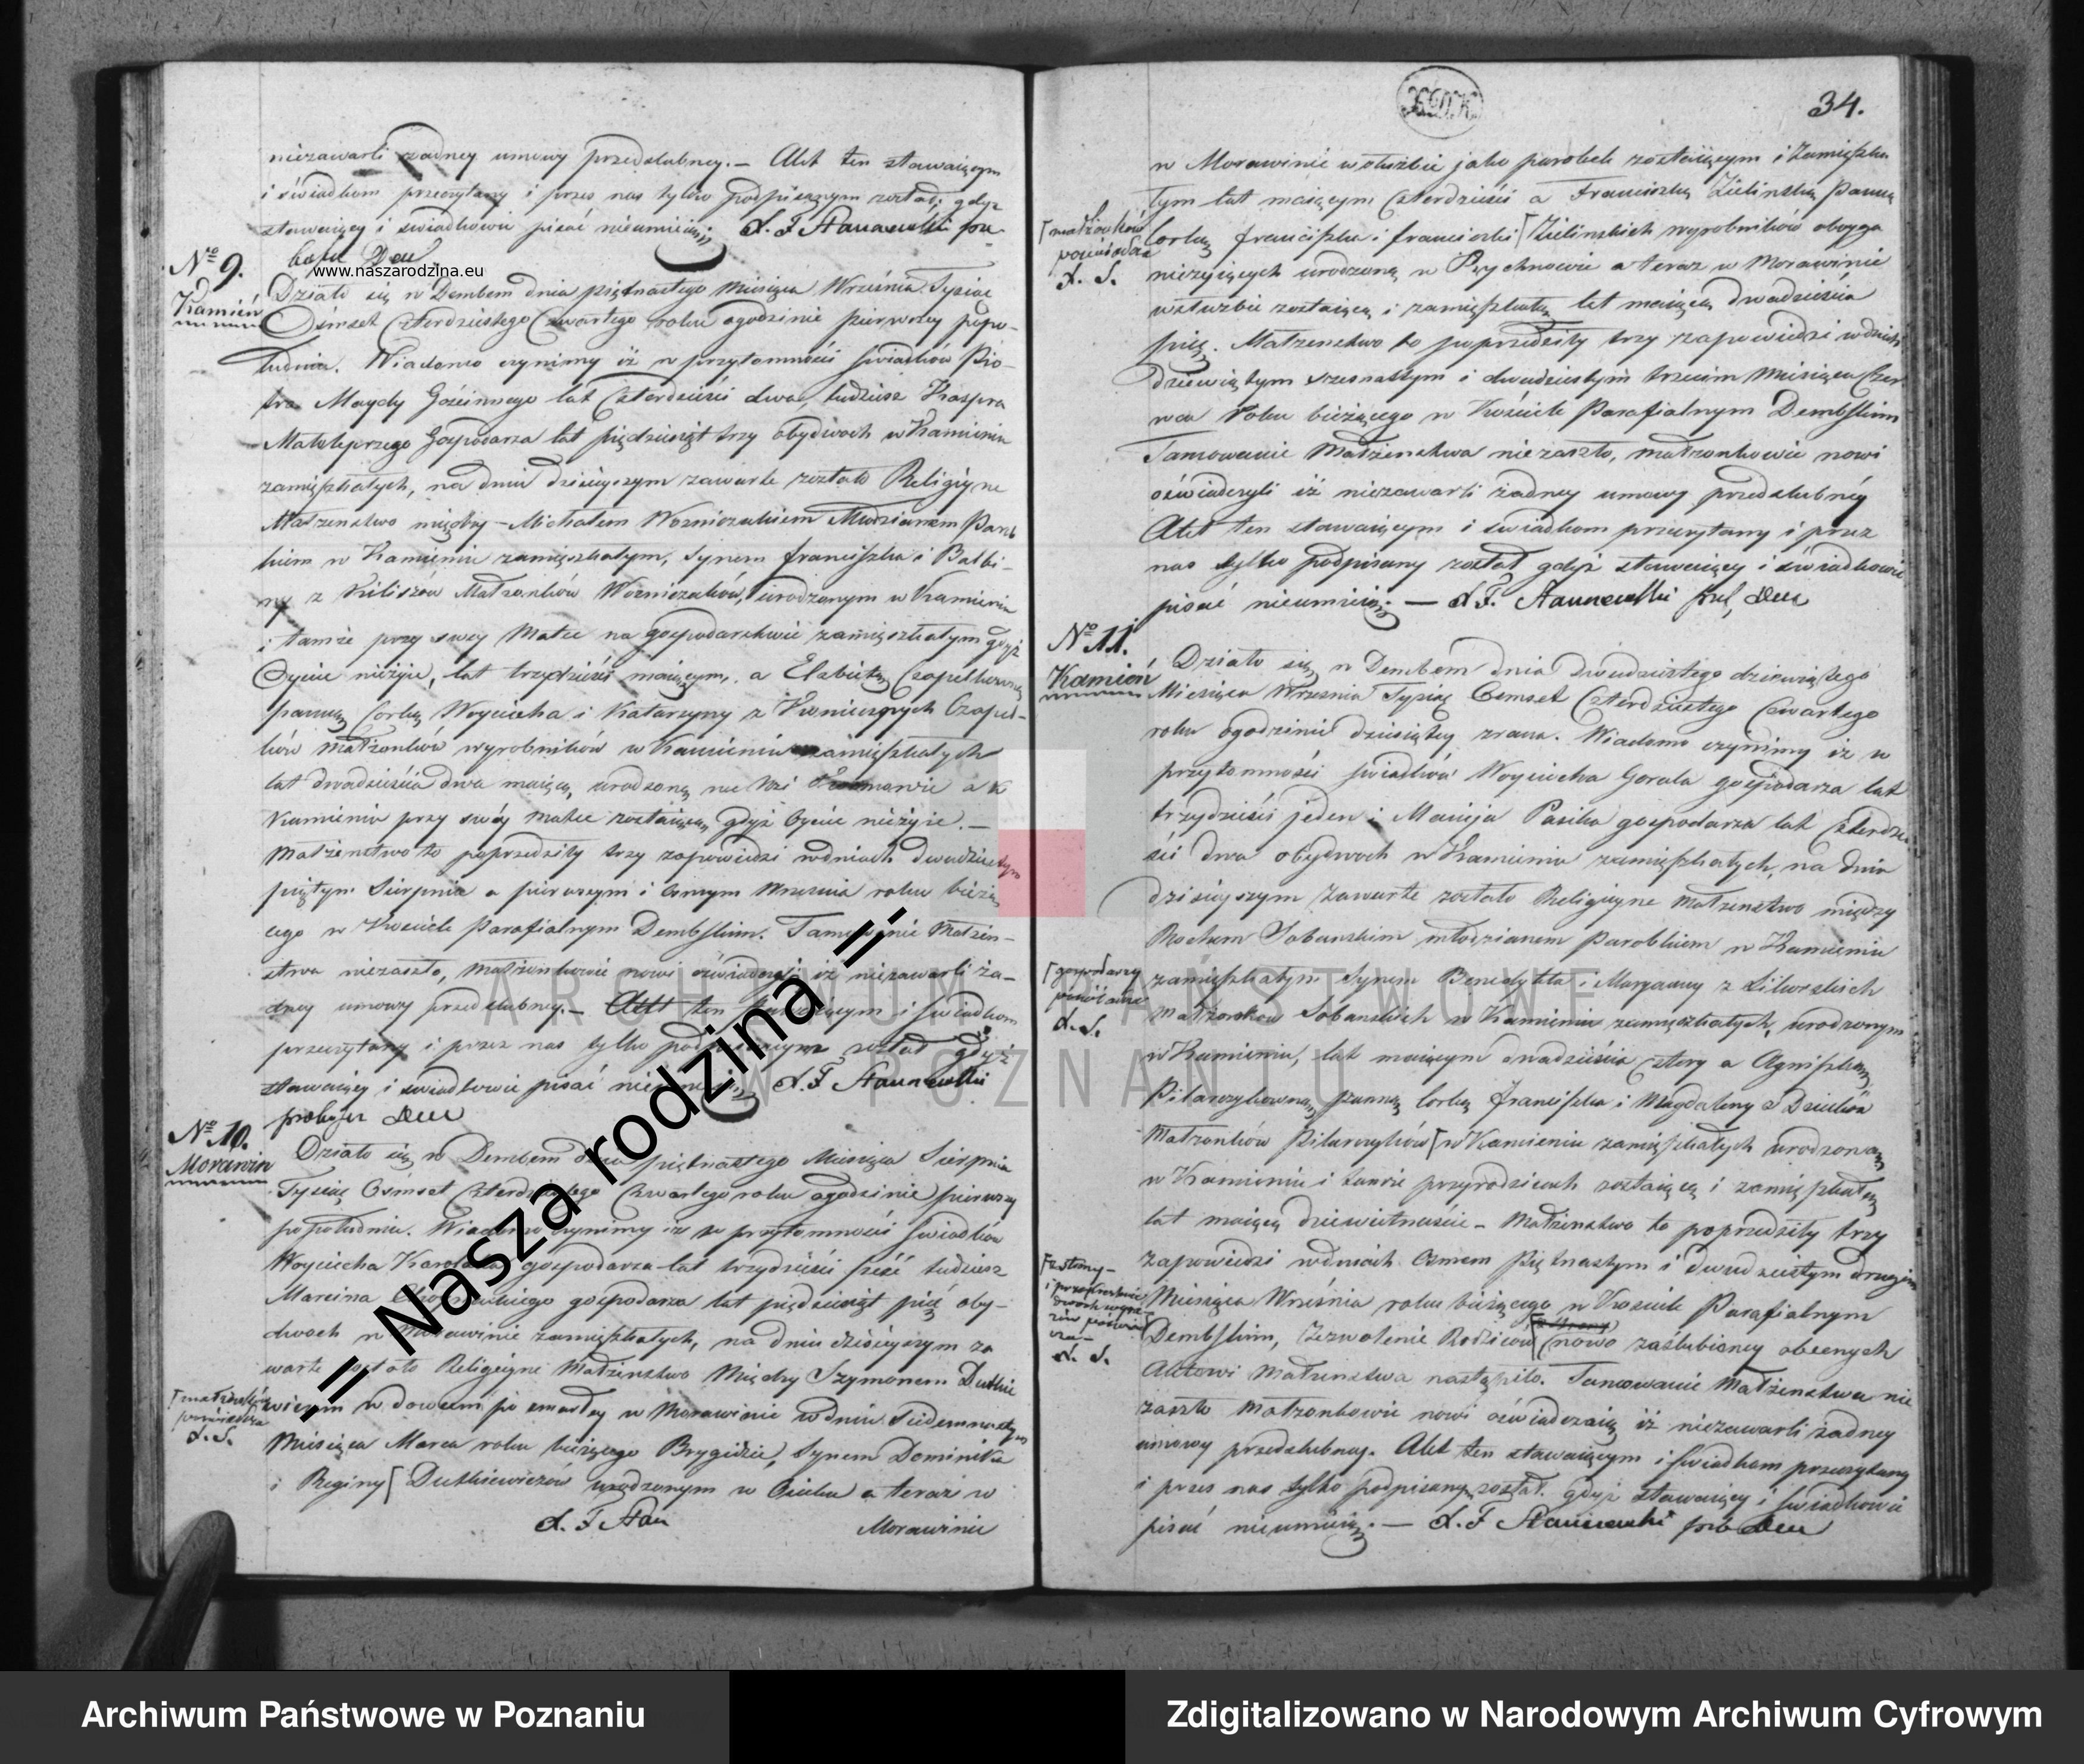 niezawarli żadney umowy przedslubney.— Akt ten stawaiącym
i świadkom przeczytany i przez nas tylko podpisanym został, gdyż
stawaiący i swiadkowie pisać nieumieią.
www.naszarodzina.eu
No 9.
Kamień
Działo się w Dembem dnia piętnastego Miesiąca Września Tysiąc
Osmset Czterdziestego Czwartego roku ogodzinie pierwszey popo-
łudniu. Wiadomo czynimy iż w przytomności swiadków Pio-
tra Maydy Gościnnego lat Czterdzieści dwa, tudzież Kaspra
Gospodarza lat pięćdziesiąt trzy obydwoch w Kamieniu
zamięszkałych, na dniu dzisieyszym zawarte zostało Religiyne
Małżenstwo między – Michałem Wozniczakiem Młodzianem Parob
kiem w Kamieniu zamięszkałym, synem Franciszka i Balbi-
ny z Kiliszów Małżonków Wozniczaków, urodzonym w Kamieniu
i tamże przy swey Matce na gospodarstwie zamięszkałym gdyż
Oyciec nieżyie, lat trzydzieści maiącym, a Elzbietą Czapelkowną
panną Corką Woyciecha i Katarzyny z Czapel-
ków małżonków wyrobników w Kamieniu zamięszkałych
lat dwadzieścia dwa maiącą, urodzoną na wsi a w
Kamieniu przy swéy matce zostaiącą gdyż Oyciec nieżyie.—
Małżenstwo to poprzedziły trzy zapowiedzi w dniach dwudziestym
piątym Sierpnia a pierwszym i osmym Wrzesnia roku bieżą
cego w Kosciele Parafialnym Dembskim. Tamowanie Małżen-
stwa niezaszło, Małżonkowie nowi oświadczyli iż niezawarli ża-
dney umowy przedslubney.— Akt ten stawaiącym i swiadkom
przeczytany i przez nas tylko podpisanym został gdyż
stawaiący i swiadkowie pisać nieumieią
No 10.
Morawin
Działo się w Dembem dnia piętnastego Miesiąca Sierpnia
Tysiąc Osmset Czterdziestego Czwartego roku ogodzinie pierwszey
popołudniu. Wiadomo czynimy iż w przytomności Swiadków
Woyciecha gospodarza lat trzydzieści sześć tudzież
Marcina gospodarza lat pięćdziesiąt pięć oby-
dwoch w Morawinie zamięszkałych, na dniu dzisieyszym za
warte zostało Religiyne Małżenstwo Między Szymonem Dutkie
wiczem wdowcem po zmarłey w Morawinie w dniu Siedemnastym
Miesiąca Marca roku bieżącego Brygidzie, Synem Dominika
i Reginy [ Dutkiewiczów urodzonym w a teraz w
[małżonków
poswiadcza
Morawinie
= Nasza rodzina =
34.
w Morawinie w słuzbie jako parobek zostaiącym i Zamięszka
łym lat maiącym Czterdzieści a Franciszką Zielinską Panną
Corką Franciszka i Franciszki [Zielinskich wyrobników oboyga
[małżonków
poswiadcza
nieżyiących urodzoną w Rychnowie a teraz w Morawinie
w służbie zostaiącą i zamięszkałą lat maiącą dwadzieścia
pięć. Małżenstwo to poprzedziły trzy zapowiedzi w dniach
dziewiątym szesnastym i dwudziestym trzecim Miesiąca Czer
wca roku bieżącego w Kościele Parafialnym Dembskim
Tamowanie Małżenstwa niezaszło, małżonkowie nowi
oświadczyli iż niezawarli żadney umowy przedslubnéy
Akt ten stawaiącym i swiadkom przeczytany i przez
nas tylko podpisany został gdyż stawaiący i świadkowie
pisać nieumieią. —
No 11.
Kamień
Działo się w Dembem dnia dwudziestego dziewiątego
Miesiąca Wrzesnia Tysiąc Osmset Czterdziestego Czwartego
roku ogodzinie dziesiątey zrana. Wiadomo czynimy iż w
przytomności swiadków Woyciecha Gorala gospodarza lat
trzydzieści jeden i Macieja Pasika gospodarza lat Czterdzie
ści dwa obydwoch w Kamieniu zamięszkałych, na dniu
dzisieyszym Zawarte zostało Religiyne Małżenstwo między
Rochem Sobanskim młodzianem Parobkiem w Kamieniu
zamięszkałym Synem Benedykta i Maryanny z
Małżonków Sobanskich w Kamieniu zamięszkałych, urodzonym
[gospodarzy
w Kamieniu, lat maiącym dwadzieścia cztery a Agniszką
Pilarczykowną panną Corką Franciszka i Magdaleny z
Małżonków Pilarczyków [w Kamieniu zamięszkałych urodzoną
w Kamieniu i tamże przy rodzicach zostaiącą i zamięszkałą
lat maiącą dziewietnaście – Małżenstwo to poprzedziły trzy
zapowiedzi w dniach Osmem Piętnastym i Dwudziestym drugim
Miesiąca Września roku bieżącego w Kosciele Parafialnym
Dembskim, Zezwolenie Rodziców nowo zaślubioney obecnych
Aktowi Małżenstwa nastąpiło. Tamowanie Małżenstwa nie
zaszło Małżonkowie nowi oświadczaią iż niezawarli żadney
umowy przedslubney. Akt ten stawaiącym i swiadkom przeczytany
i przez nas tylko podpisany został. gdyż stawaiący i swiadkowie
pisać nieumieią. —
ARCHIWUM PAŃSTWOWE
W POZNANIU
Archiwum Państwowe w Poznaniu
Zdigitalizowano w Narodowym Archiwum Cyfrowym